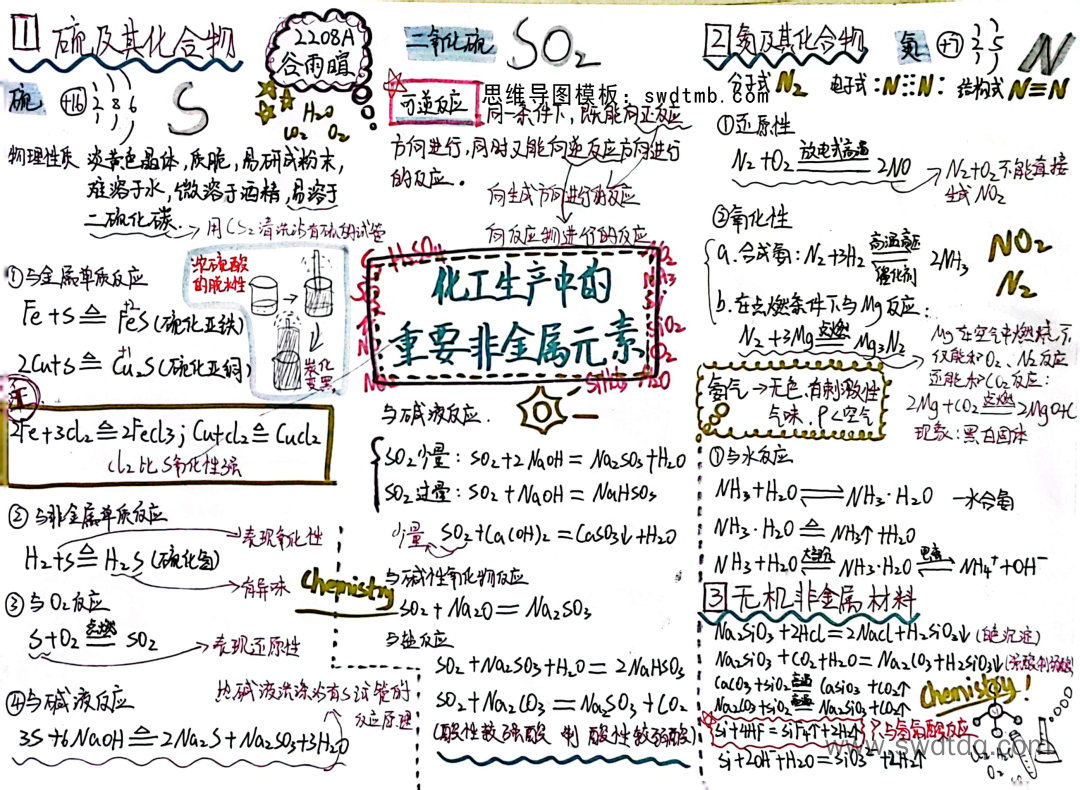 1 硫及其化合物
硫 +16 2 8 6 S
物理性质 淡黄色晶体，质脆，易研成粉末，
难溶于水，微溶于酒精，易溶于
二硫化碳.
用CS₂清洗沾有硫的试管
①与金属单质反应
Fe+S≜FeS(硫化亚铁)
+2
2Cu+S≜Cu₂S(硫化亚铜)
+1
浓硫酸
的脱水性
炭化
变黑
2Fe+3Cl₂≜2FeCl3；Cu+Cl₂≜CuCl₂
Cl₂比S氧化性强
②与非金属单质反应
表现氧化性
H₂+S≜H₂S(硫化氢)
有异味
③与O₂反应
S+O₂ 点燃 SO₂
表现还原性
④与碱液反应
热碱液洗涤沾有S试管的
反应原理
3S+6NaOH≜2Na₂S+Na₂SO₃+3H₂O
2208A
谷雨暄
H₂O
CO₂ O₂
二氧化硫 SO₂
思维导图模板：swdtmb.com
可逆反应
同一条件下，既能向正反应
方向进行，同时又能向逆反应方向进行
的反应.
向生成方向进行的反应
向反应物进行的反应
化工生产中的
重要非金属元素
与碱液反应.
SO₂少量：SO₂+2NaOH=Na₂SO₃+H₂O
SO₂过量：SO₂+NaOH=NaHSO₃
少量 SO₂+Ca(OH)₂=CaSO₃↓+H₂O
与碱性氧化物反应
SO₂+Na₂O=Na₂SO₃
与盐反应
SO₂+Na₂SO₃+H₂O=2NaHSO₃
SO₂+Na₂CO₃=Na₂SO₃+CO₂
(酸性较强酸 制 酸性较弱酸)
Chemistry
2 氮及其化合物
氮 +7 2 5 N
分子式 N₂ 电子式：N⋮⋮N： 结构式 N≡N
①还原性
N₂+O₂ 放电或高温 2NO
N₂+O₂不能直接
生成NO₂
②氧化性
a.合成氨：N₂+3H₂ 高温高压 催化剂 2NH₃
NO₂
N₂
b.在点燃条件下与Mg反应：
N₂+3Mg 点燃 Mg₃N₂
Mg在空气中燃烧,不
仅能和O₂、N₂反应
还能和CO₂反应：
2Mg+CO₂ 点燃 2MgO+C
现象：黑白固体
氨气→无色，有刺激性
气味，ρ<空气
①与水反应
NH₃+H₂O⇌NH₃·H₂O 一水合氨
NH₃·H₂O≜NH₃↑+H₂O
NH₃+H₂O ⇌ NH₃·H₂O ⇌ NH₄⁺+OH⁻
3 无机非金属材料
Na₂SiO₃+2HCl=2NaCl+H₂SiO₃↓(白色沉淀)
Na₂SiO₃+CO₂+H₂O=Na₂CO₃+H₂SiO₃↓
CaCO₃+SiO₂ 高温 CaSiO₃+CO₂↑
Na₂CO₃+SiO₂ 高温 Na₂SiO₃+CO₂↑
Chemistry!
Si+4HF=SiF₄↑+2H₂↑ 只与氢氟酸反应
Si+2OH⁻+H₂O=SiO₃²⁻+2H₂↑
CO₂ H₂O
O₂
www.swdtdq.com